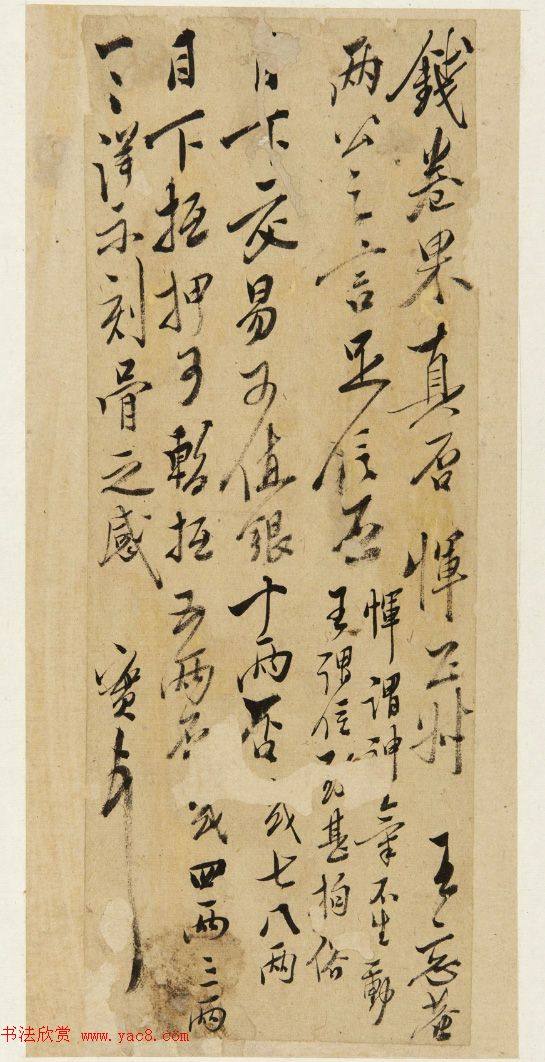 錢卷果真否 惲正叔 王忘菴
兩公之言足信否
惲謂神氣不生動
王謂信不甚拍俗
目下交易可值銀十兩否 或七八兩
目下抵押可暫抵五兩否 或四兩三兩
一一得示刻骨之感
寶
书法欣赏 www.yac8.com